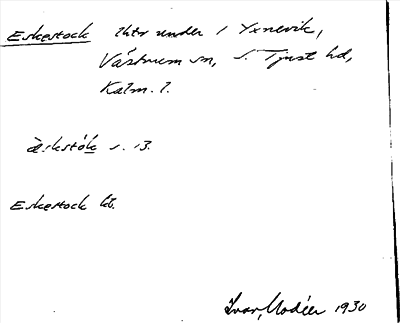 Eskestock lhtr under 1 Yxnevik,
Västrum sn, S. Tjust hd,
Kalm. l.
æskstók s. 13.
Eskestock kb.
Ivar Modéer 1930